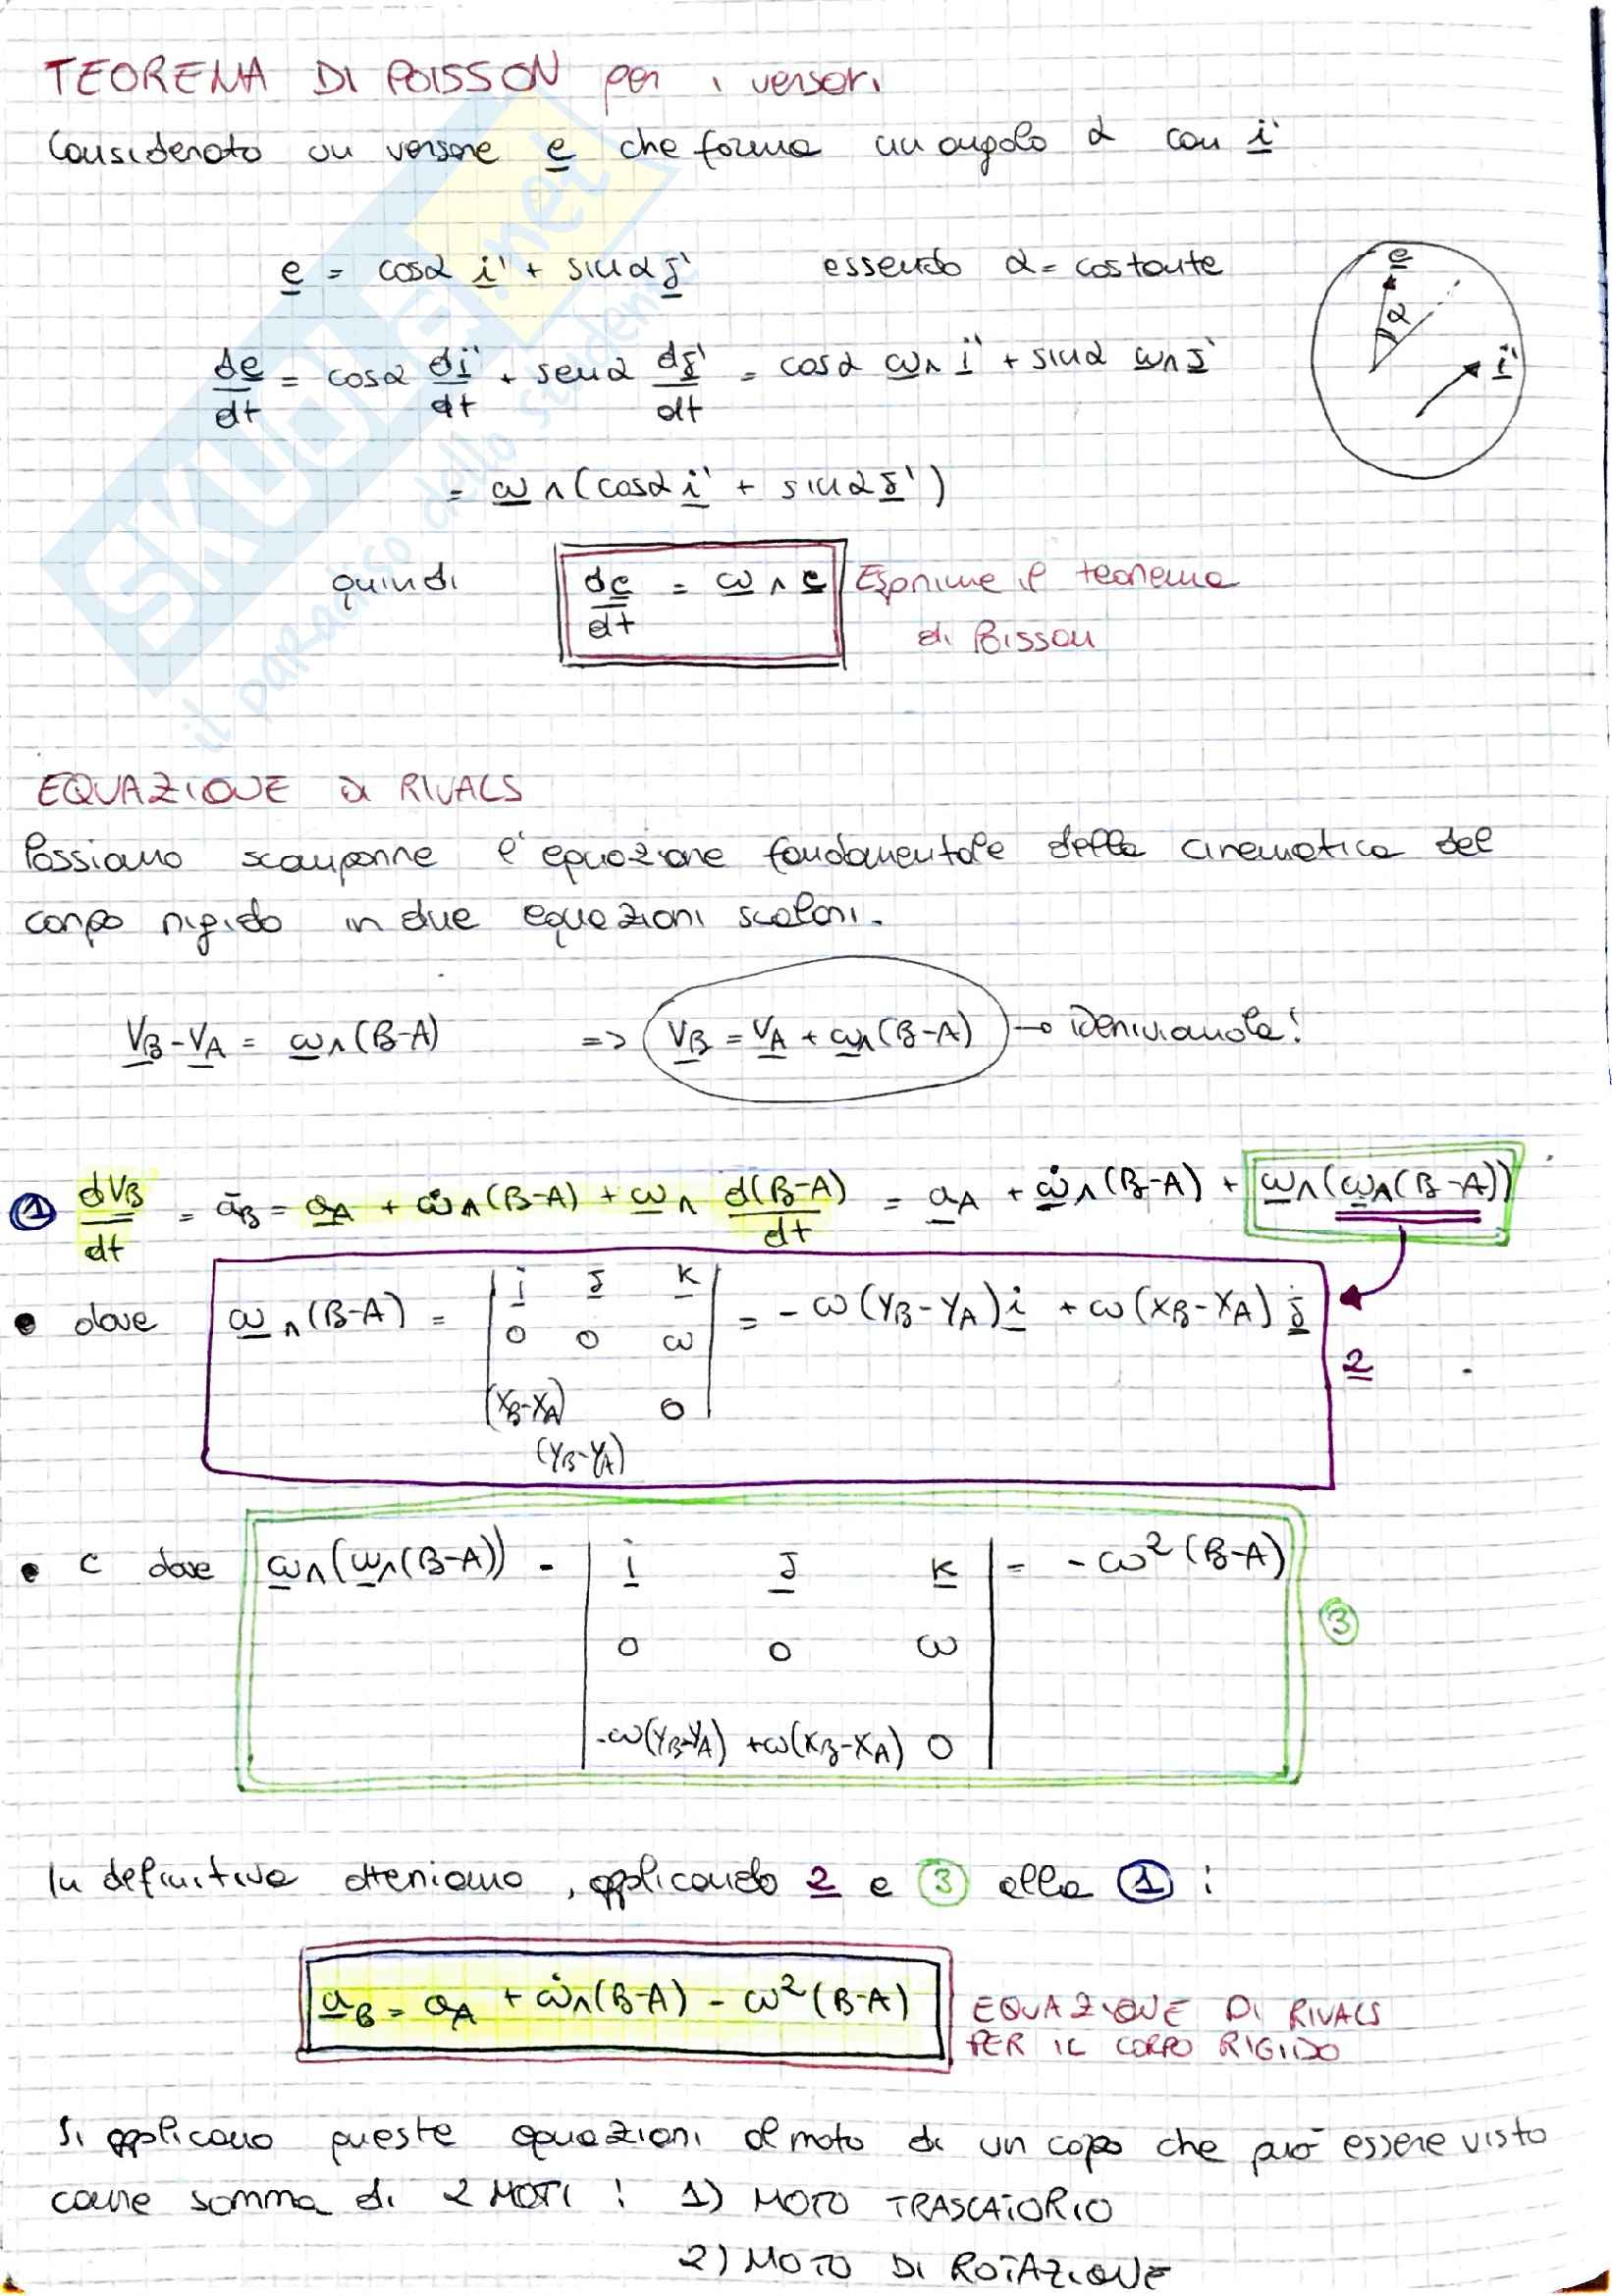 TEOREMA DI POISSON per i versori
Considerato un versore e che forma un angolo α con i'
e = cosα i' + sinα j' essendo α = costante
de/dt = cosα di'/dt + senα dj'/dt = cosα ω∧i' + sinα ω∧j'
= ω∧(cosα i' + sinα j')
e
α
i'
quindi de/dt = ω∧e Esprime il teorema
di Poisson
EQUAZIONE DI RIVALS
Possiamo scomporre l'equazione fondamentale della cinematica del
corpo rigido in due equazioni scalari.
VB-VA = ω∧(B-A) => VB = VA + ω∧(B-A) → Deriviamola!
1 dVB/dt = aB = aA + ω̇∧(B-A) + ω∧ d(B-A)/dt = aA + ω̇∧(B-A) + ω∧(ω∧(B-A))
• dove ω∧(B-A) = | i j k | = -ω(YB-YA)i + ω(XB-XA)j
0 0 ω
2
(XB-XA) 0
(YB-YA)
• e dove ω∧(ω∧(B-A)) = | i j k | = -ω²(B-A)
3
0 0 ω
-ω(YB-YA) +ω(XB-XA) 0
In definitiva otteniamo, applicando 2 e 3 alla 1 :
aB = aA + ω̇∧(B-A) - ω²(B-A) EQUAZIONE DI RIVALS
PER IL CORPO RIGIDO
Si applicano queste equazioni al moto di un copo che può essere visto
come somma di 2 MOTI : 1) MOTO TRASLATORIO
2) MOTO DI ROTAZIONE
SKUOLA.net
il paradiso dello studente